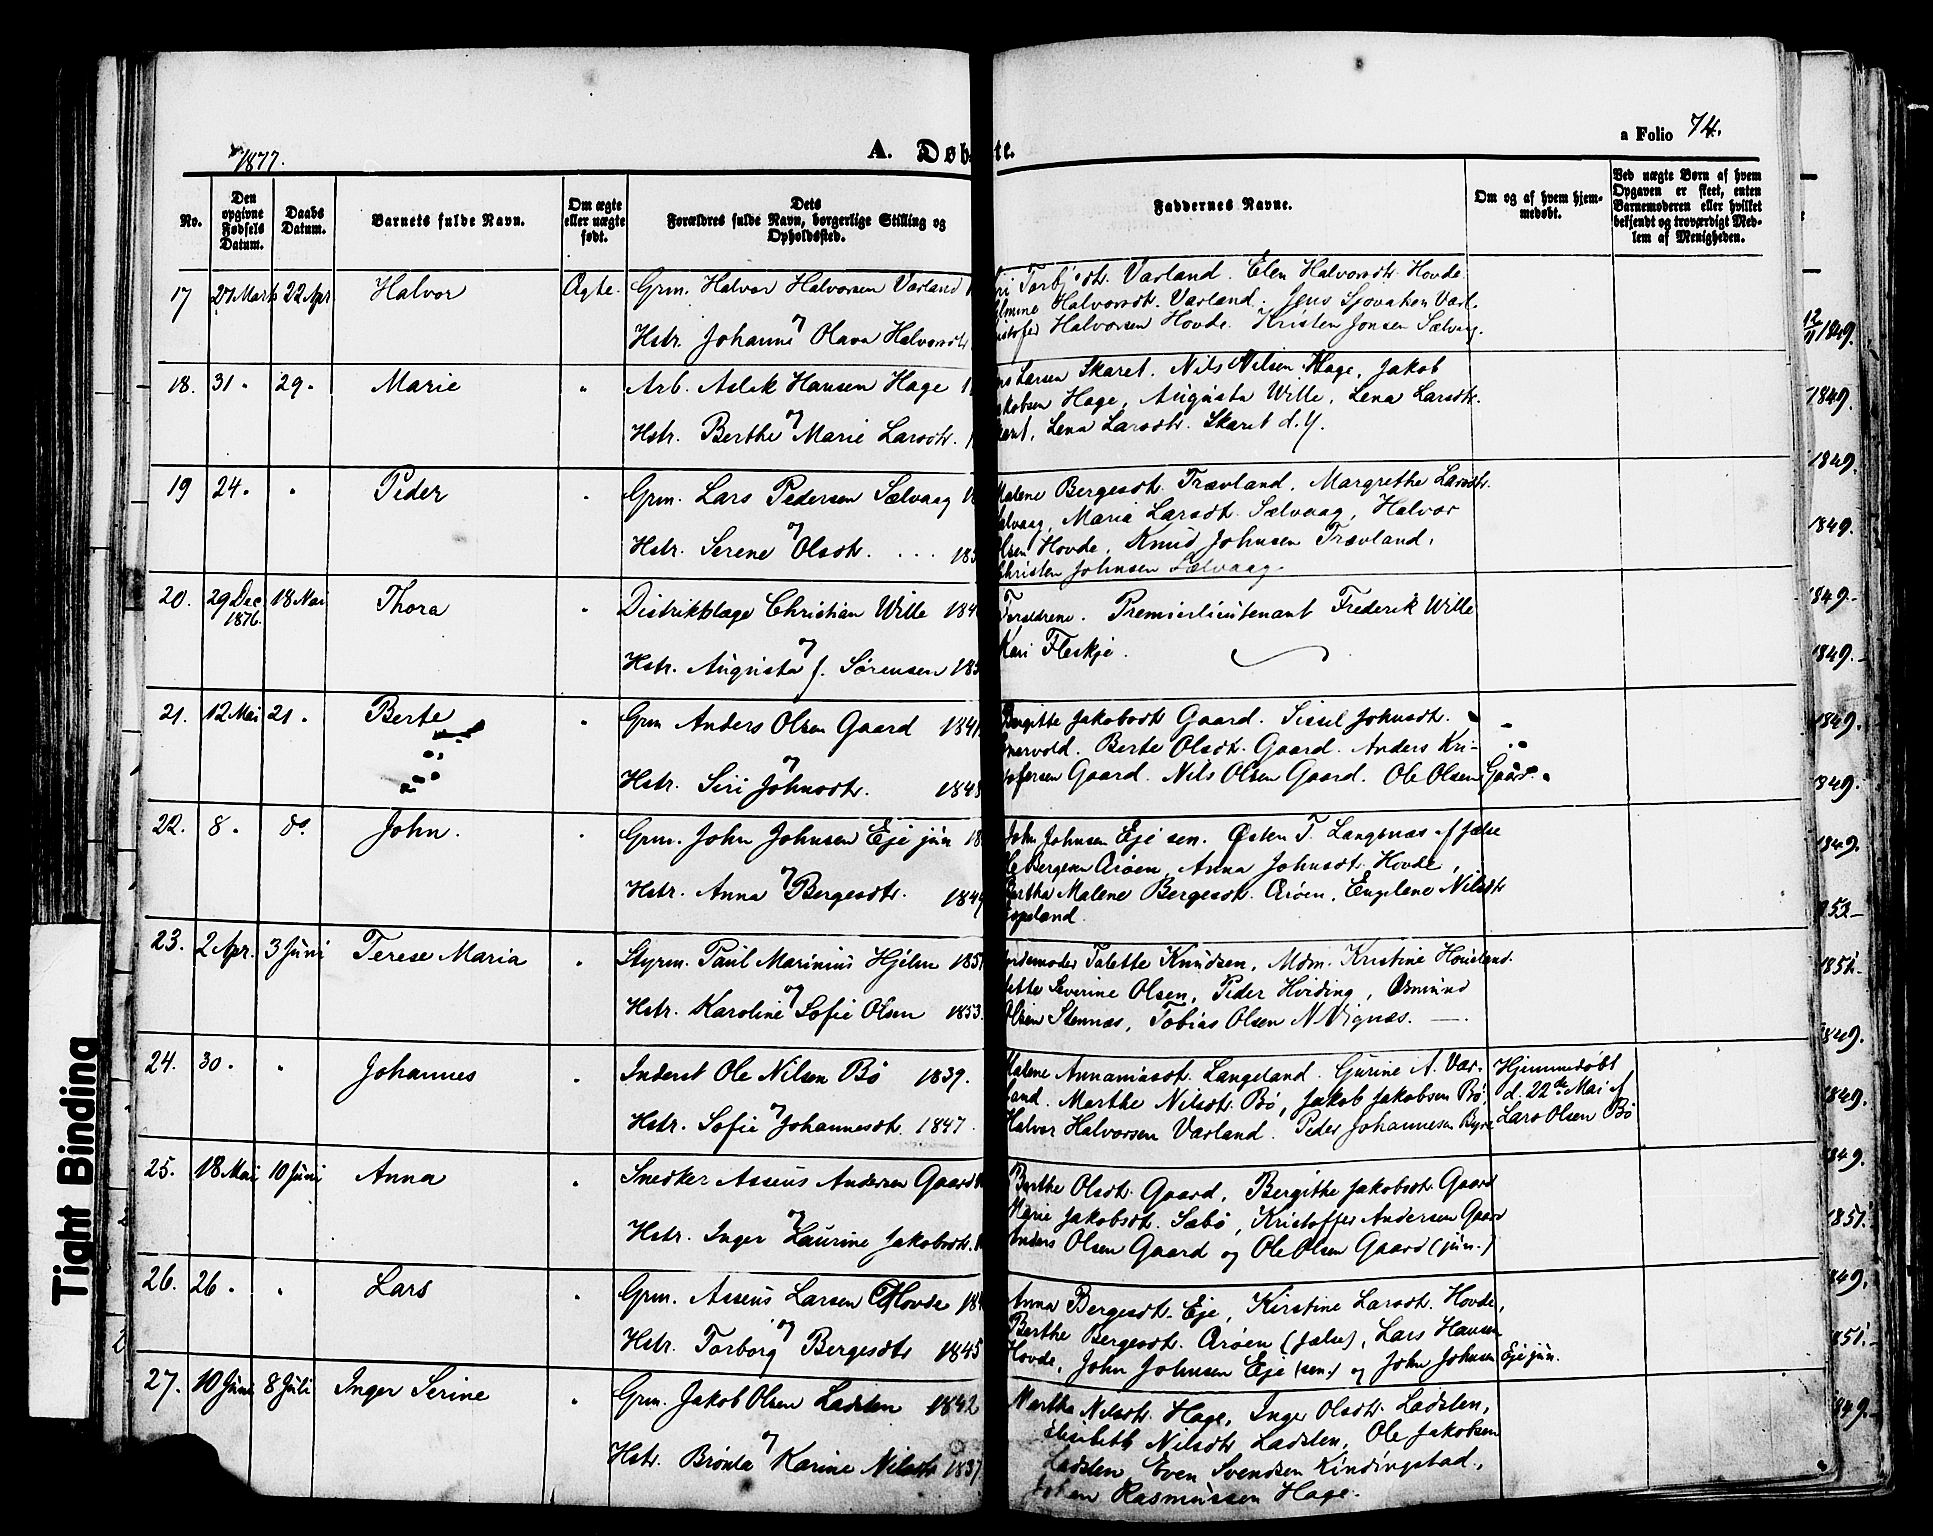 1877.
A. Døbte.
a Folio 74.
No.
Den opgivne Fødsels Datum.
Daabs Datum.
Barnets fulde Navn.
Om ægte eller uægte født.
Dets Forældres fulde Navn, borgerlige Stilling og Opholdssted.
Faddernes Navne.
Om og af hvem hjemmedøbt.
Ved uægte Børn af hvem Opgaven er skeet, enten Barnemoderen eller hvilket bekjendt og troværdigt Medlem af Menigheden.
17 27 Marts 22 Apr Halvor Ægte. Grm. Halvor Halvorsen Varland
og
Hstr. Johanne Olava Halvorsdtr
Torbjsdtr. Varland. Elen Halvorsdtr. Hovde
Halvorsdtr. Varland. Jens Sjovatsen Varl.
Halvorsen Hovde. Kristen Jonsen Sælvaag.
18. 31 " 29 " Marie " Arb. Aslak Hansen Hage
og
Hstr. Berthe Marie Larsdtr.
Larsen Skaret. Nils Nilsen Hage, Jakob
Jakobsen Hage, Augusta Wille, Lena Larsdtr.
Lena Larsdtr. Skaret d.Y.
19 24 " " Peder " Grm. Lars Pedersen Sælvaag
og
Hstr. Serene Olsdtr.
Malene Bergesdtr. Trævland, Margrethe Larsdtr.
Maria Larsdtr. Sælvaag, Halvor
Olsen Hovde, Knud Johnsen Trævland,
Christen Johnsen Sælvaag.
20. 29 Dec 1876. 18 Mai Thora " Distriktslæge Christian Wille
og
Hstr. Augusta f. Sørensen
Forældrene. Premierlieutenant Frederik Wille
Kari Fleskje.
21. 12 Mai 21 " Berte " Grm Anders Olsen Gaard 1841
og
Hstr. Siri Johnsdtr. 1848
Bergitte Jakobsdtr Gaard. Sissel Johnsdtr.
Berte Olsdtr. Gaard. Anders Kri-
Gaard. Nils Olsen Gaard. Ole Olsen Gaard.
22. 8 " do John. " Grm. John Johnsen Eje jun
og
Hstr. Anna Bergesdtr. 1849
John Johnsen Eje sen. Østen T. Langenæs af Jælse
Ole Bergesen Arøen, Anna Johnsdtr. Hovde,
Bertha Malene Bergesdtr. Arøen, Engelene Nilsdtr
23. 2 Apr. 3 Juni Terese Maria " Styrm. Paul Marinius Hjelm
og
Hstr. Karoline Sofie Olsen 1853.
Jordemoder Talette Knudsen, Mdm. Kristine Houeland
Severine Olsen, Peder Hviding, Osmund
Olsen Stennæs, Tobias Olsen N. Vignæs.
24. 30 " " Johannes " Inderst Ole Nilsen Bø 1839.
og
Hstr. Sofie Johannesdtr. 1847.
Malene Annaniasdtr. Langeland. Gurine A. Var-
land. Marthe Nilsdtr. Bø, Jakob Jakobsen Bø,
Halvor Halvorsen Varland. Peder Johannesen Byre
Hjemmedøbt
d. 22de Mai af
Lars Olsen Bø
25. 18 Mai 10 Juni Anna " Snedker Asseus Andersen Gaard
og
Hstr. Inger Laurine Jakobsdtr.
Berthe Olsdtr. Gaard, Bergithe Jakobsdtr. Gaard
Marie Jakobsdtr. Sæbø, Kristoffer Andersen Gaard
Anders Olsen Gaard og Ole Olsen Gaard (jun.)
26. 26 " " Lars " Grm. Asseus Larsen Hovde
og
Hstr. Torborg Bergesdtr 1845
Anna Bergesdtr. Eje, Kirstine Larsdtr. Hovde,
Berthe Bergesdtr. Arøen (Jælse), Lars Hansen
Hovde, John Johnsen Eje (sen.) og John Johnsen Eje jun.
27. 10 Juni 8 Juli Inger Serine " Grm. Jakob Olsen Ladsten 1842
og
Hstr. Brønla Karine Nilsdtr 1837
Martha Nilsdtr. Hage, Inger Olsdtr. Ladsten,
Elisabeth Nilsdtr Ladsten, Ole Jakobsen
Ladsten, Even Svendsen Kindingstad,
Johan Rasmussen Hage.
12/11 1849.
1849.
1849.
1849.
1849.
1849.
1849.
1849.
1849.
1851.
1849.
1849.
1849.
1851.
1849.
1851.
1849.
Tight Binding